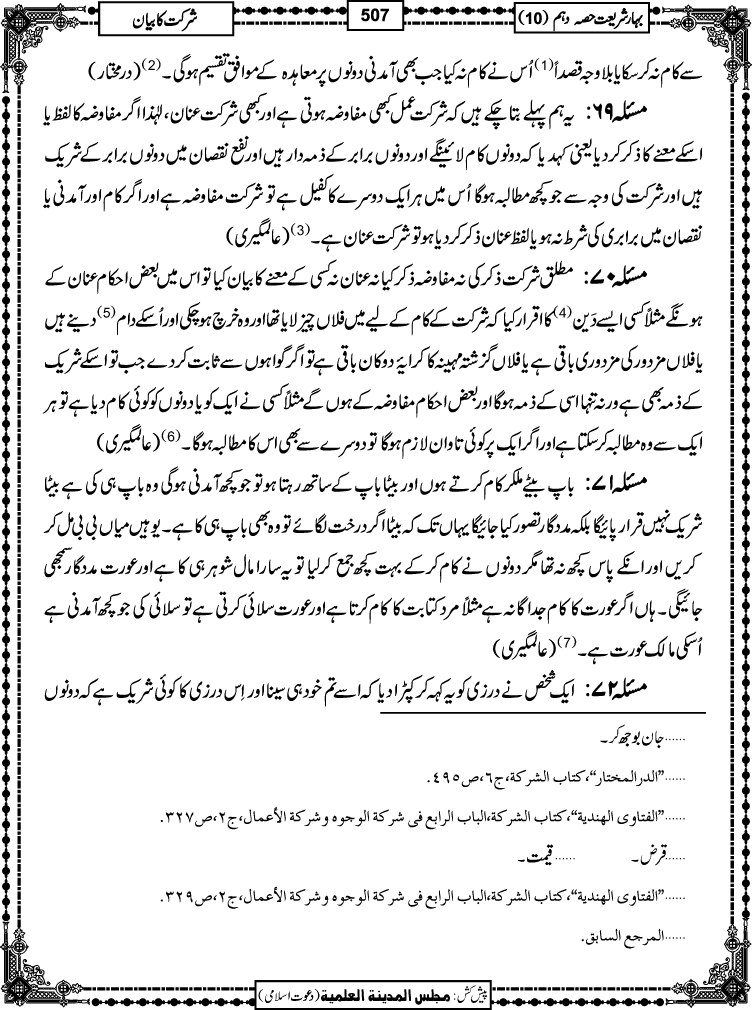 بہارِ شریعت حصہ دہم (10)
507
شرکت کا بیان
سے کام نہ کر سکا یا بلا وجہ قصداً(1) اُس نے کام نہ کیا جب بھی آمدنی دونوں پر معاہدہ کے موافق تقسیم ہوگی۔(2) (درمختار)
مسئلہ ۶۹: یہ ہم پہلے بتا چکے ہیں کہ شرکت عمل کبھی مفاوضہ ہوتی ہے اور کبھی شرکت عنان، لہٰذا اگر مفاوضہ کا لفظ یا
اسکے معنے کا ذکر کر دیا یعنی کہدیا کہ دونوں کام لائینگے اور دونوں برابر کے ذمہ دار ہیں اور نفع نقصان میں دونوں برابر کے شریک
ہیں اور شرکت کی وجہ سے جو کچھ مطالبہ ہوگا اُس میں ہر ایک دوسرے کا کفیل ہے تو شرکت مفاوضہ ہے اور اگر کام اور آمدنی یا
نقصان میں برابری کی شرط نہ ہو یا لفظ عنان ذکر کر دیا ہو تو شرکت عنان ہے۔(3) (عالمگیری)
مسئلہ ۷۰: مطلق شرکت ذکر کی نہ مفاوضہ ذکر کیا نہ عنان نہ کسی کے معنے کا بیان کیا تو اس میں بعض احکام عنان کے
ہونگے مثلاً کسی ایسے دَین(4) کا اقرار کیا کہ شرکت کے کام کے لیے میں فلاں چیز لایا تھا اور وہ خرچ ہوچکی اور اُسکے دام(5) دینے ہیں
یا فلاں مزدور کی مزدوری باقی ہے یا فلاں گزشتہ مہینہ کا کرایۂ دوکان باقی ہے تو اگر گواہوں سے ثابت کردے جب تو اسکے شریک
کے ذمہ بھی ہے ورنہ تنہا اسی کے ذمہ ہوگا اور بعض احکام مفاوضہ کے ہوں گے مثلاً کسی نے ایک کو یا دونوں کو کوئی کام دیا ہے تو ہر
ایک سے وہ مطالبہ کرسکتا ہے اور اگر ایک پر کوئی تاوان لازم ہوگا تو دوسرے سے بھی اس کا مطالبہ ہوگا۔(6) (عالمگیری)
مسئلہ ۷۱: باپ بیٹے ملکر کام کرتے ہوں اور بیٹا باپ کے ساتھ رہتا ہو تو جو کچھ آمدنی ہوگی وہ باپ ہی کی ہے بیٹا
شریک نہیں قرار پائیگا بلکہ مددگار تصور کیا جائیگا یہاں تک کہ بیٹا اگر درخت لگائے تو وہ بھی باپ ہی کا ہے۔ یوہیں میاں بی بی مل کر
کریں اور انکے پاس کچھ نہ تھا مگر دونوں نے کام کر کے بہت کچھ جمع کر لیا تو یہ سارا مال شوہر ہی کا ہے اور عورت مددگار سمجھی
جائیگی۔ ہاں اگر عورت کا کام جداگانہ ہے مثلاً مرد کتابت کا کام کرتا ہے اور عورت سلائی کرتی ہے تو سلائی کی جو کچھ آمدنی ہے
اُسکی مالک عورت ہے۔(7) (عالمگیری)
مسئلہ ۷۲: ایک شخص نے درزی کو یہ کہہ کر کپڑا دیا کہ اسے تم خود ہی سینا اور اِس درزی کا کوئی شریک ہے کہ دونوں
......جان بوجھ کر۔
......"الدرالمختار"،کتاب الشرکة،ج۶،ص۴۹۵.
......"الفتاوی الهندیة"،کتاب الشرکة،الباب الرابع فی شرکة الوجوه وشرکة الأعمال،ج۲،ص۳۲۷.
......قرض۔ ......قیمت۔
......"الفتاوی الهندیة"،کتاب الشرکة،الباب الرابع فی شرکة الوجوه وشرکة الأعمال،ج۲،ص۳۲۹.
......المرجع السابق.
پیش کش: مجلس المدینة العلمیة (دعوت اسلامی)